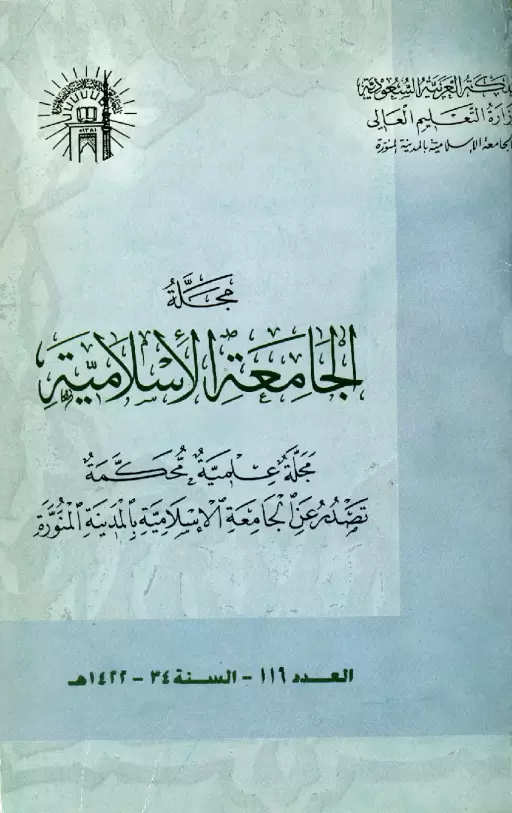 المملكة العربية السعودية
وزارة التعليم العالي
الجامعة الإسلامية بالمدينة المنورة
١٣٨١هـ
مَجَلَّةُ
الجَامِعَةِ الإِسْلَامِيَّةِ
مَجَلَّةٌ عِلْمِيَّةٌ مُحَكَّمَةٌ
تَصْدُرُ عَنِ الْجَامِعَةِ الْإِسْلَامِيَّةِ بِالْمَدِينَةِ الْمُنَوَّرَةِ
العدد ١١٦ - السنة ٣٤ - ١٤٢٢هـ